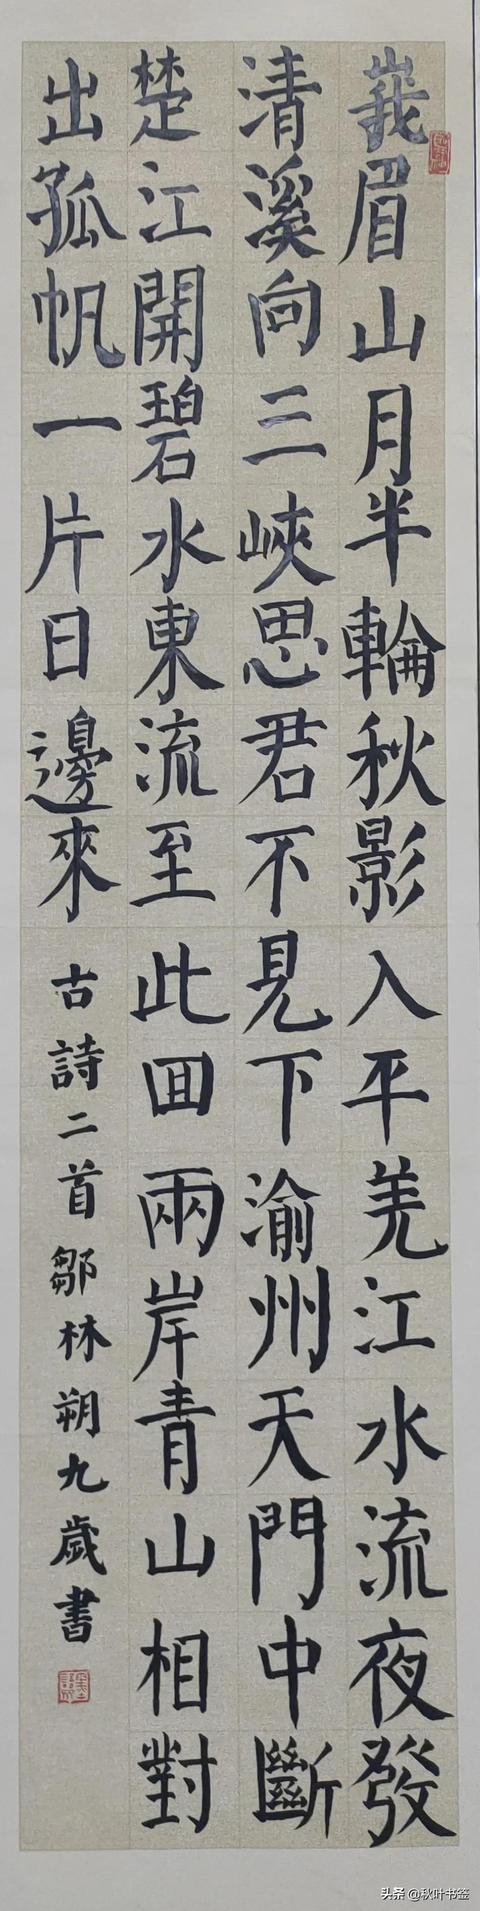 峩眉山月半輪秋影入平羌江水流夜發
清溪向三峽思君不見下渝州天門中斷
楚江開碧水東流至此回兩岸青山相對
出孤帆一片日邊來
古詩二首鄒林朔九歲書
头条 @秋叶书签